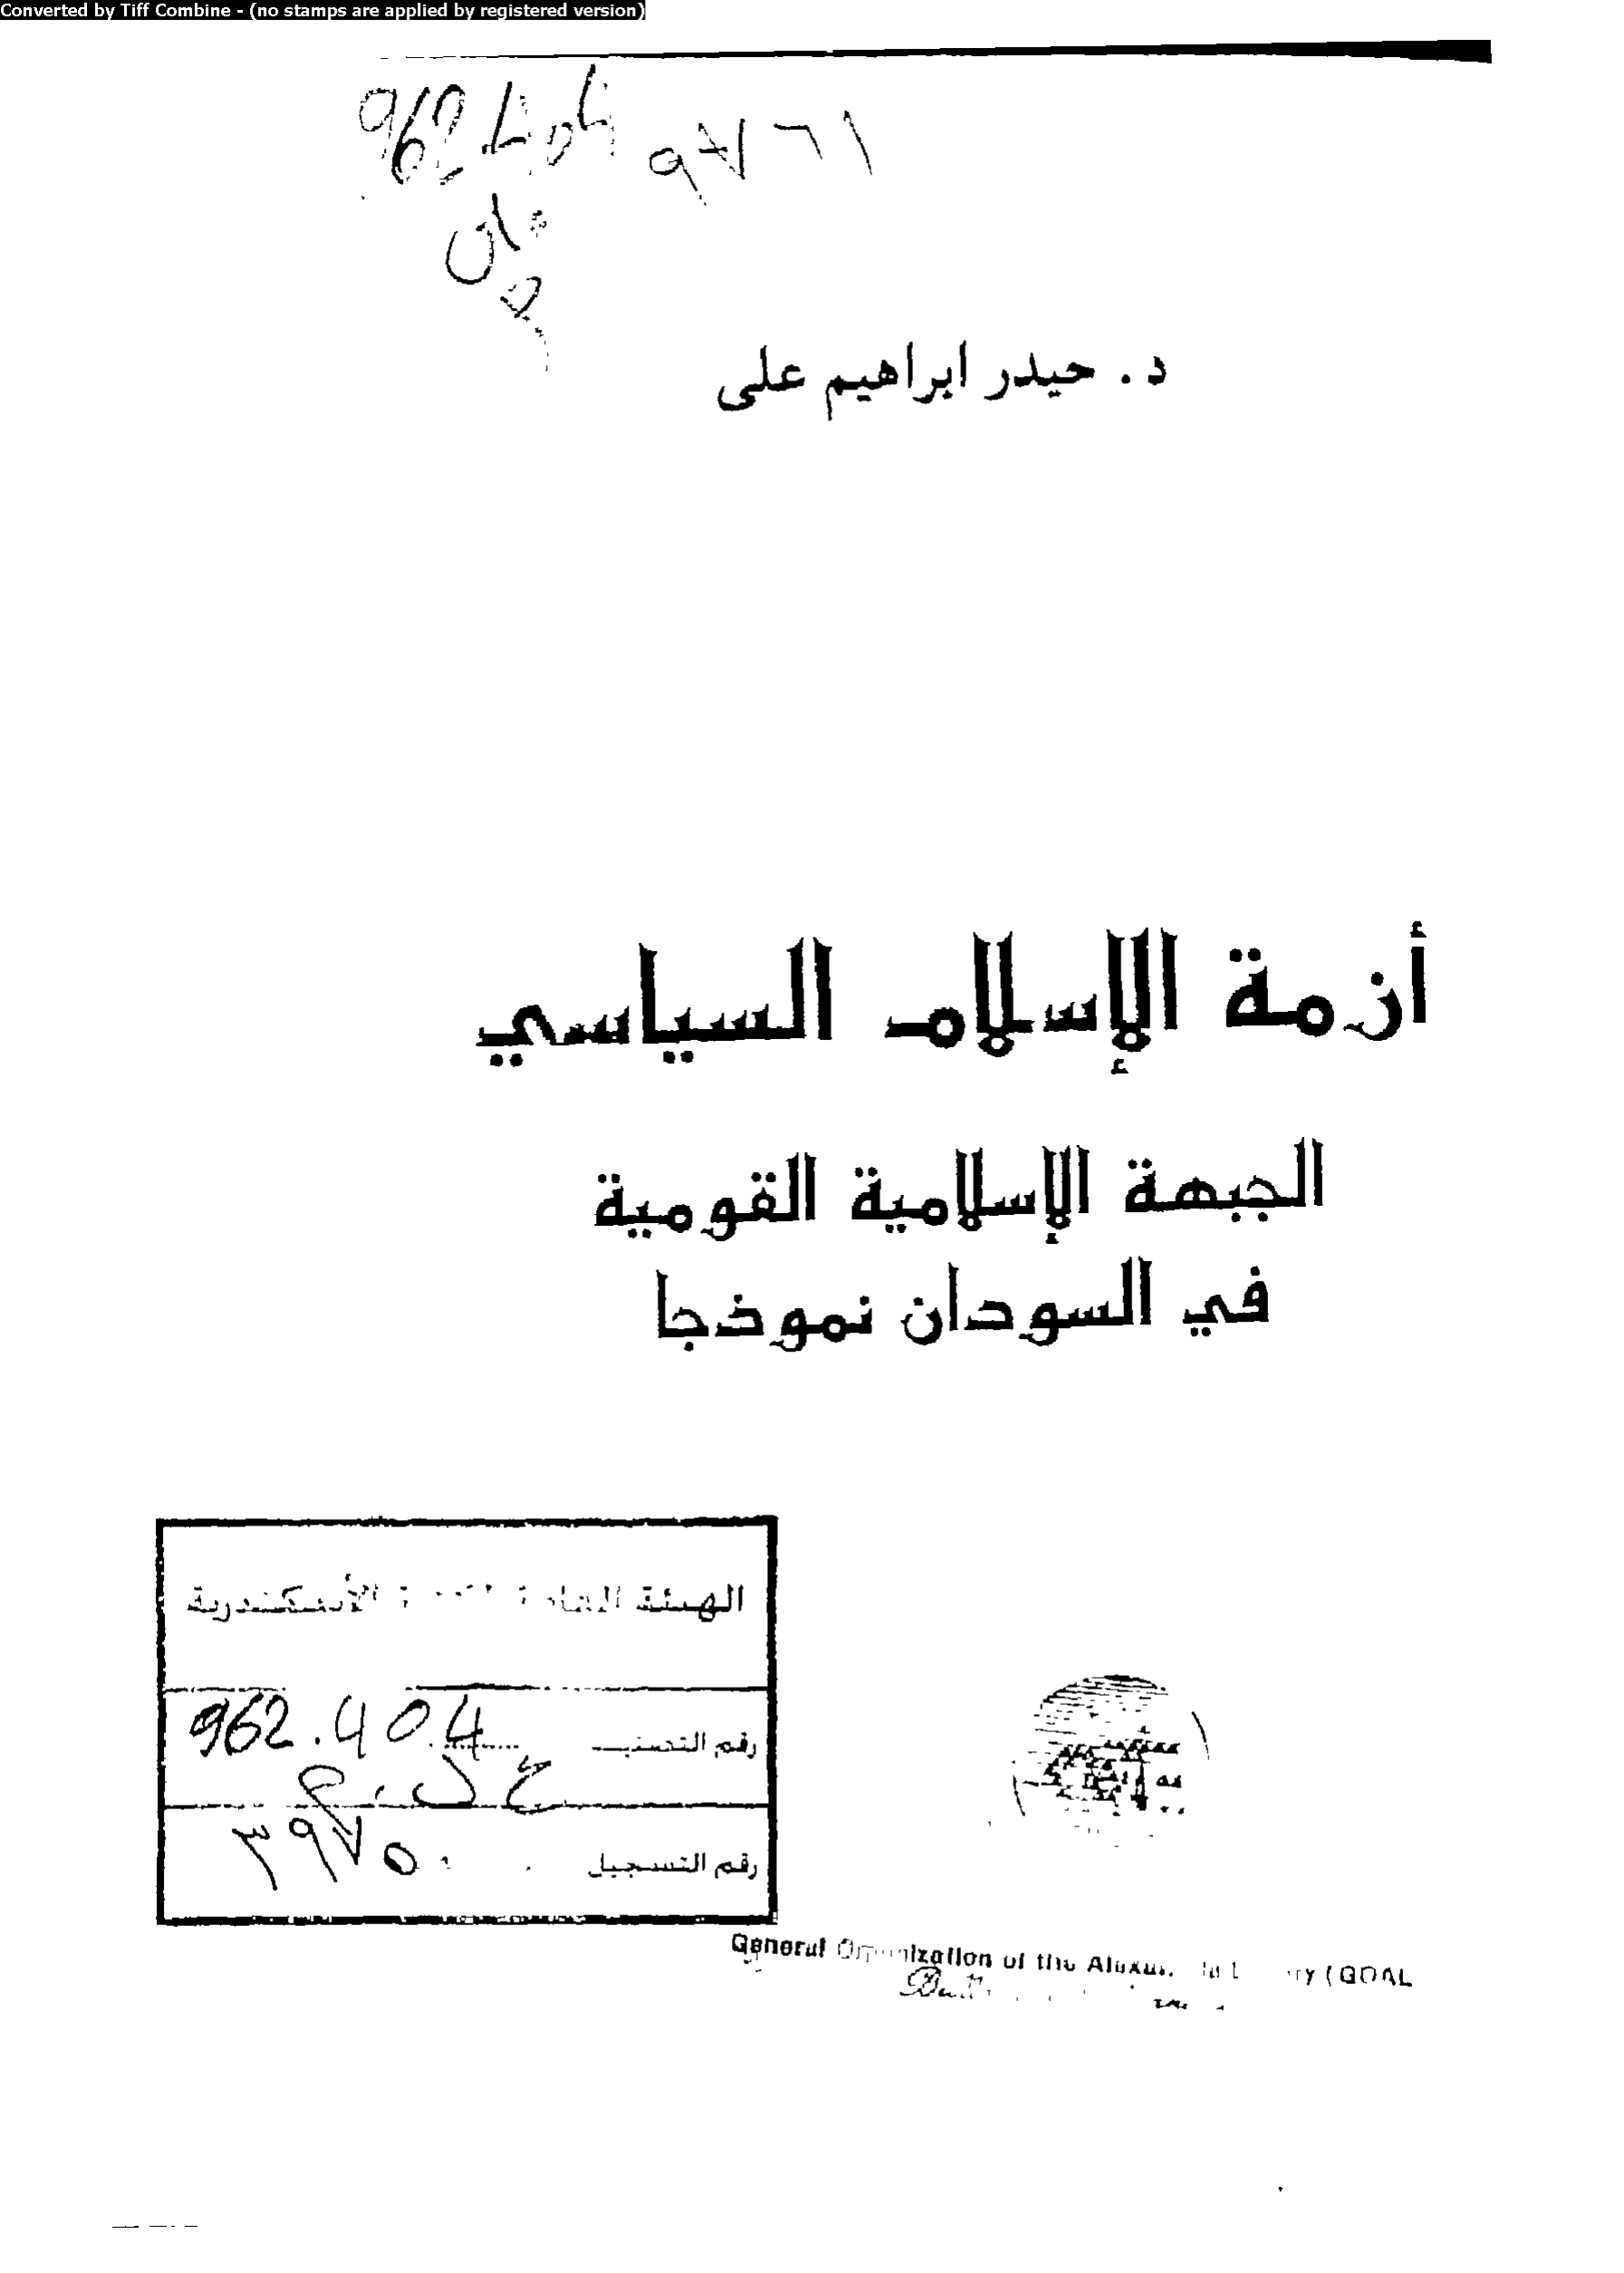 Converted by Tiff Combine - (no stamps are applied by registered version)
962.404
د. حيدر ابراهيم على
أزمة الإسلام السياسي
الجبهة الإسلامية القومية
في السودان نموذجا
الهيئة العامة الأسكندرية
رقم التصنيف 962.404
رقم التسجيل ٣٩٧٥٠
General Organization of the (GOAL